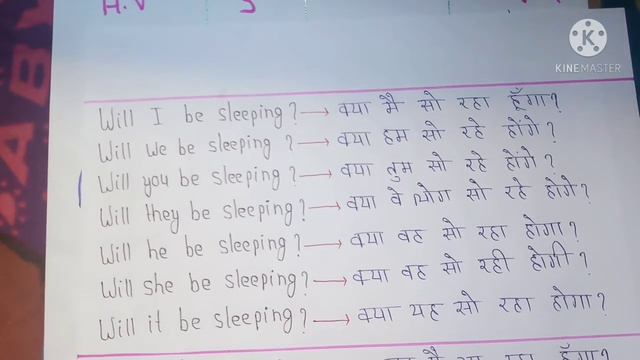 H.V S
KINEMASTER
Will I be sleeping? → क्या मै सो रहा हूँगा?
Will we be sleeping ? → क्या हम सो रहे होंगे?
Will you be sleeping? → क्या तुम सो रहे होंगे?
Will they be sleeping? → क्या वे लोग सो रहे होगे?
Will he be sleeping? → क्या वह सो रहा होगा?
Will she be sleeping? → क्या वह सो रही होगी?
Will it be sleeping? → क्या यह सो रहा होगा?